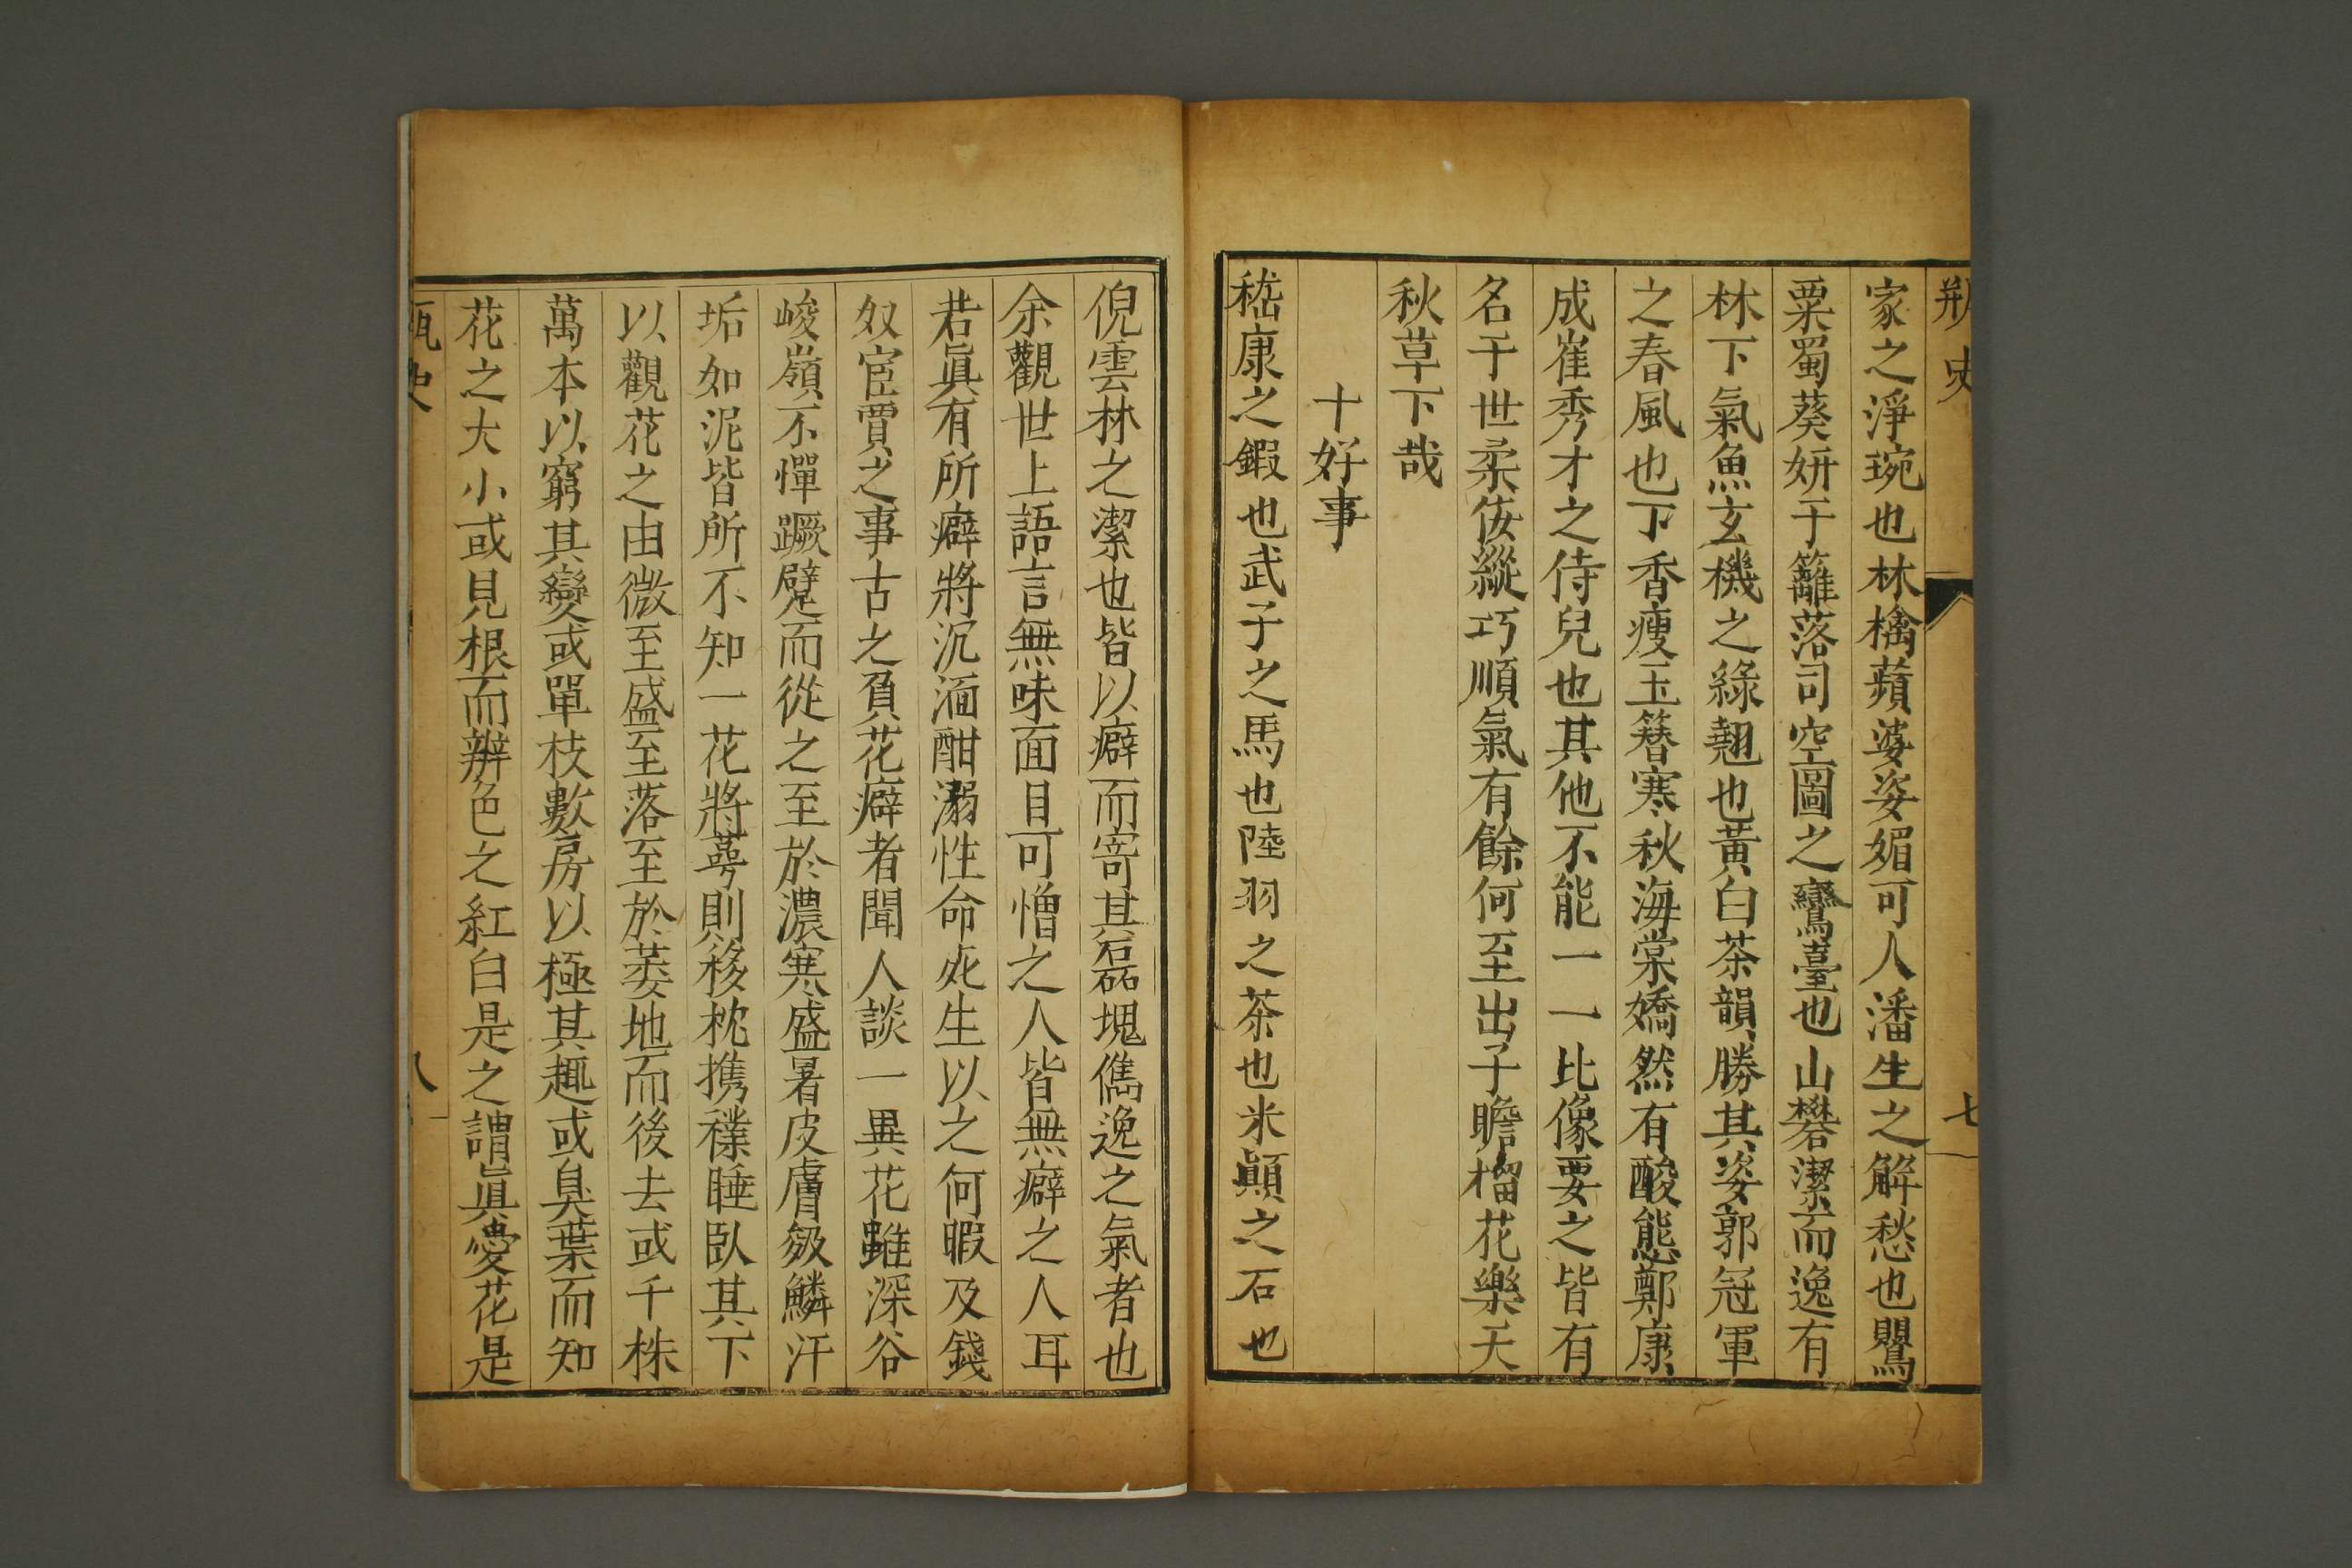 瓶史
七
家之淨琬也林檎蘋婆姿媚可人潘生之解愁也鸎
粟蜀葵妍于籬落司空圖之鸞臺也山礬潔而逸有
林下氣魚玄機之綠翹也黃白茶韻勝其姿郭冠軍
之春風也丁香瘦玉簪寒秋海棠嬌然有酸態鄭康
成崔秀才之侍兒也其他不能一一比像要之皆有
名于世柔佞縱巧順氣有餘何至出子瞻榴花樂天
秋草下哉
十好事
嵇康之鍜也武子之馬也陸羽之茶也米顚之石也
倪雲林之潔也皆以癖而寄其磊塊儁逸之氣者也
余觀世上語言無味面目可憎之人皆無癖之人耳
若眞有所癖將沉湎酣溺性命死生以之何暇及錢
奴宦賈之事古之負花癖者聞人談一異花雖深谷
峻嶺不憚蹶躄而從之至於濃寒盛暑皮膚皴鱗汗
垢如泥皆所不知一花將蕚則移枕携襆睡臥其下
以觀花之由微至盛至落至於萎地而後去或千株
萬本以窮其變或單枝數房以極其趣或臭葉而知
花之大小或見根而辨色之紅白是之謂眞愛花是
瓶史
八